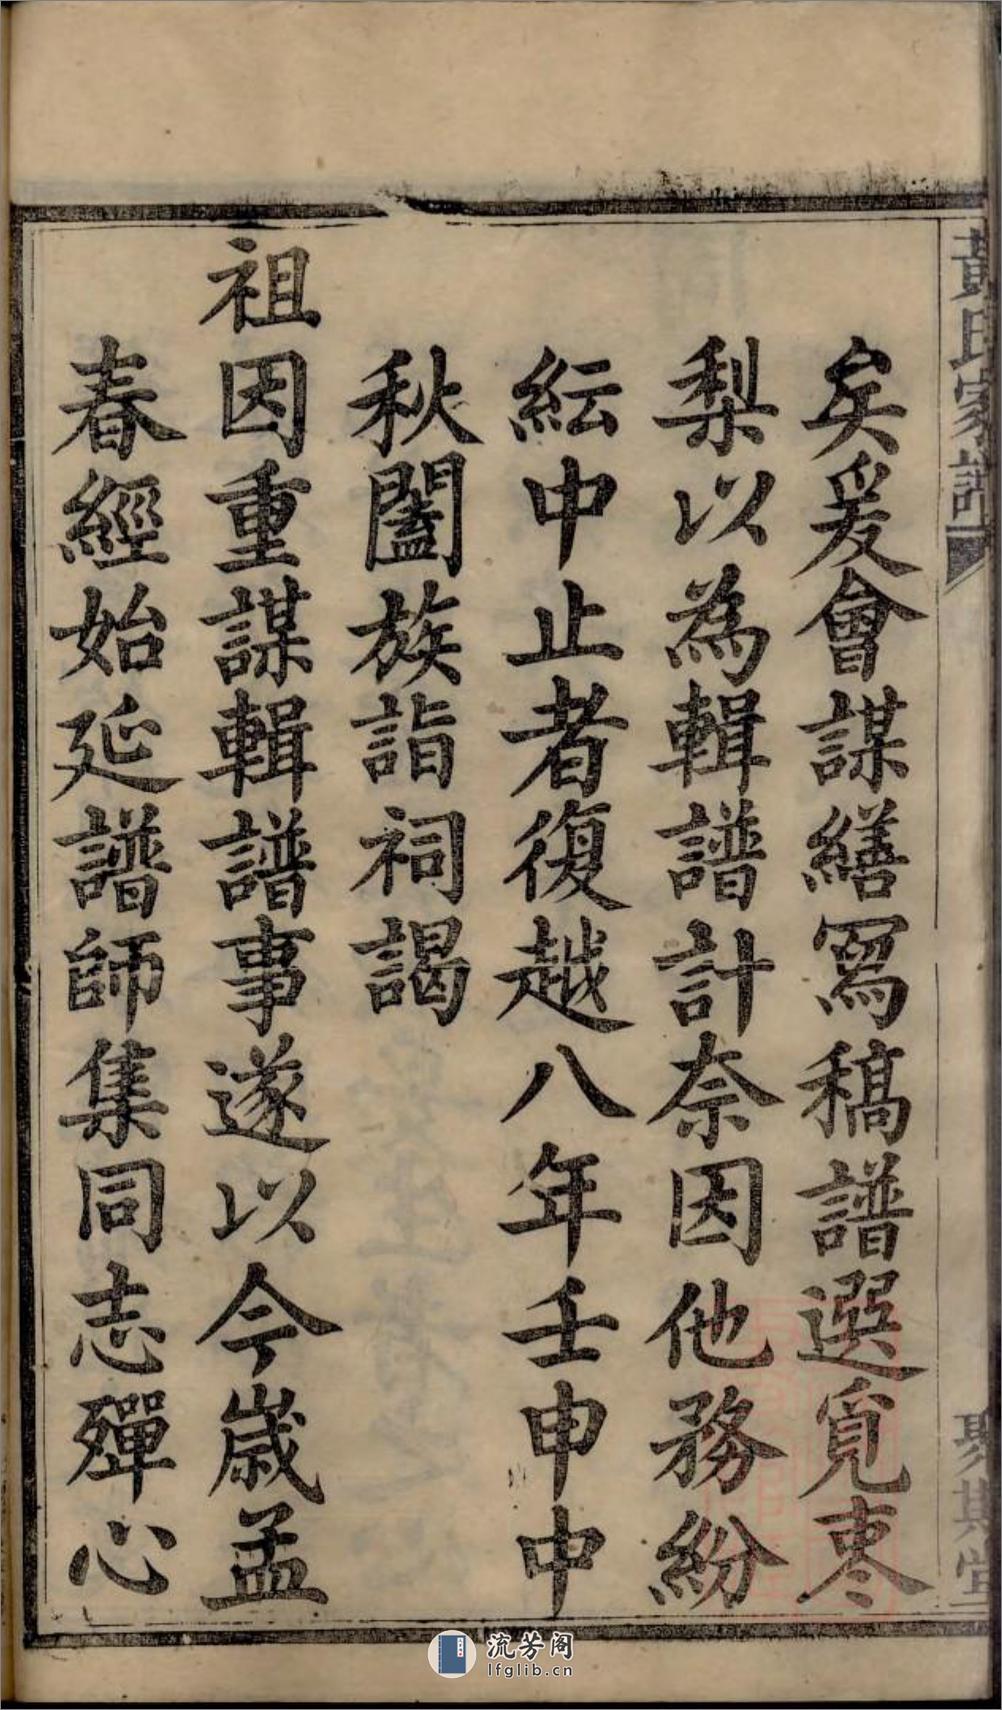 矣爰會謀繕冩稿譜選覓枣
梨以為輯譜計奈因他務紛
紜中止者復越八年壬申中
秋闔族詣祠謁
祖因重謀輯譜事遂以今歲孟
春經始延譜師集同志殫心
黄氏家譜
聚其堂
流芳阁
lfglib.cn